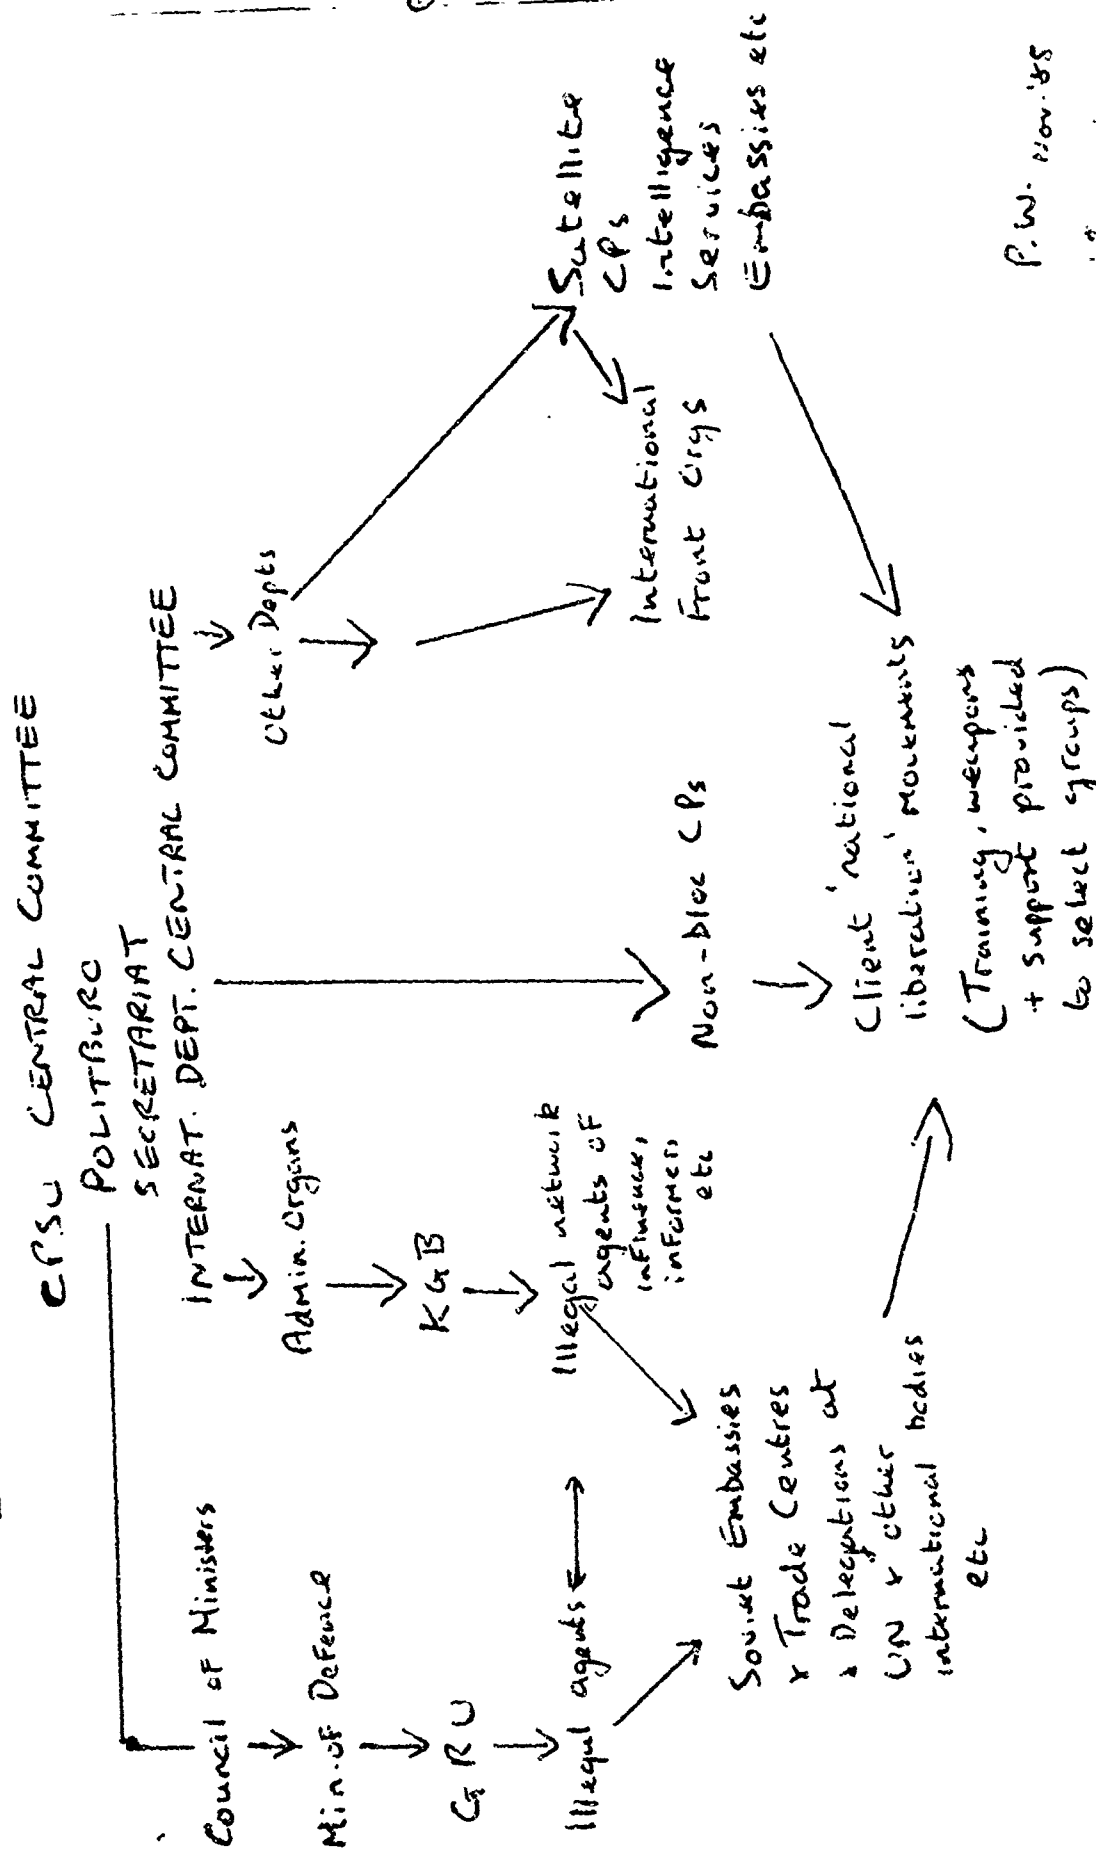 CPSU CENTRAL COMMITTEE
POLITBURO
SECRETARIAT
INTERNAT. DEPT. CENTRAL COMMITTEE
Council of Ministers
Min. of Defence
GRU
Illegal agents
Admin. Organs
KGB
Illegal network
agents of
influence,
informers
etc
Soviet Embassies
& Trade Centres
& Delegations at
UN & other
international bodies
etc
Non-bloc CPs
Client 'national
liberation' movements
(Training, weapons
+ support provided
to select groups)
Other Depts
International
Front Orgs
Satellite
CPs
Intelligence
Services
Embassies etc
P.W. Nov. '85